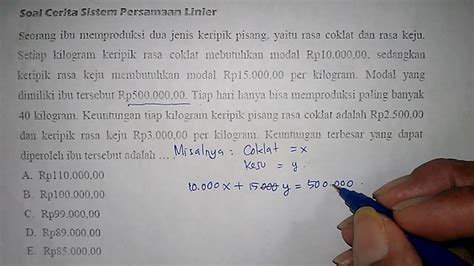 Soal Cerita Sistem Persamaan Linier
Seorang ibu memproduksi dua jenis keripik pisang, yaitu rasa coklat dan rasa keju.
Setiap kilogram keripik rasa coklat mebutuhkan modal Rp10.000,00, sedangkan
keripik rasa keju membutuhkan modal Rp15.000,00 per kilogram. Modal yang
dimiliki ibu tersebut Rp500.000,00. Tiap hari hanya bisa memproduksi paling banyak
40 kilogram. Keuntungan tiap kilogram keripik pisang rasa coklat adalah Rp2.500.00
dan keripik rasa keju Rp3.000,00 per kilogram. Keuntungan terbesar yang dapat
diperoleh ibu tersebut adalah ... Misalnya : Coklat = x
Keju = y.
A. Rp110.000,00
10.000 x + 15.000 y = 500.000.
B. Rp100.000,00
C. Rp99.000,00
D. Rp89.000,00
E. Rp85.000.00